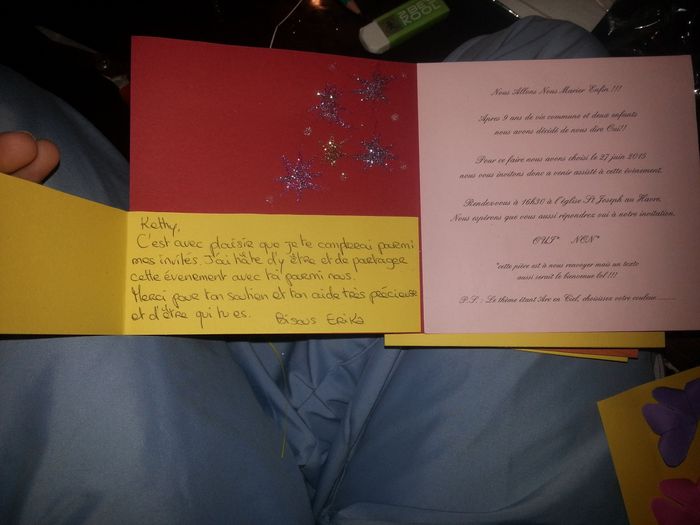 Kethy,
C'est avec plaisir que je te compterai parmi
mes invités. J'ai hâte d'y être et de partager
cette évènement avec toi parmi nous.
Merci pour ton soutien et ton aide très précieuse
et d'être qui tu es. Bisous Erika
Nous Allons Nous Marier Enfin !!!
Apres 9 ans de vie commune et deux enfants
nous avons décidé de nous dire Oui!!
Pour ce faire nous avons choisi le 27 juin 2015
nous vous invitons donc a venir assisté à cette évènement.
Rendez-vous à 16h30 à l'église St Joseph au Havre.
Nous espérons que vous aussi répondrez oui à notre invitation.
OUI* NON*
*cette pièce est à nous renvoyer mais un texto
aussi serait le bienvenue lol !!!
P.S : Le thème étant Arc en Ciel, choisissez votre couleur..........